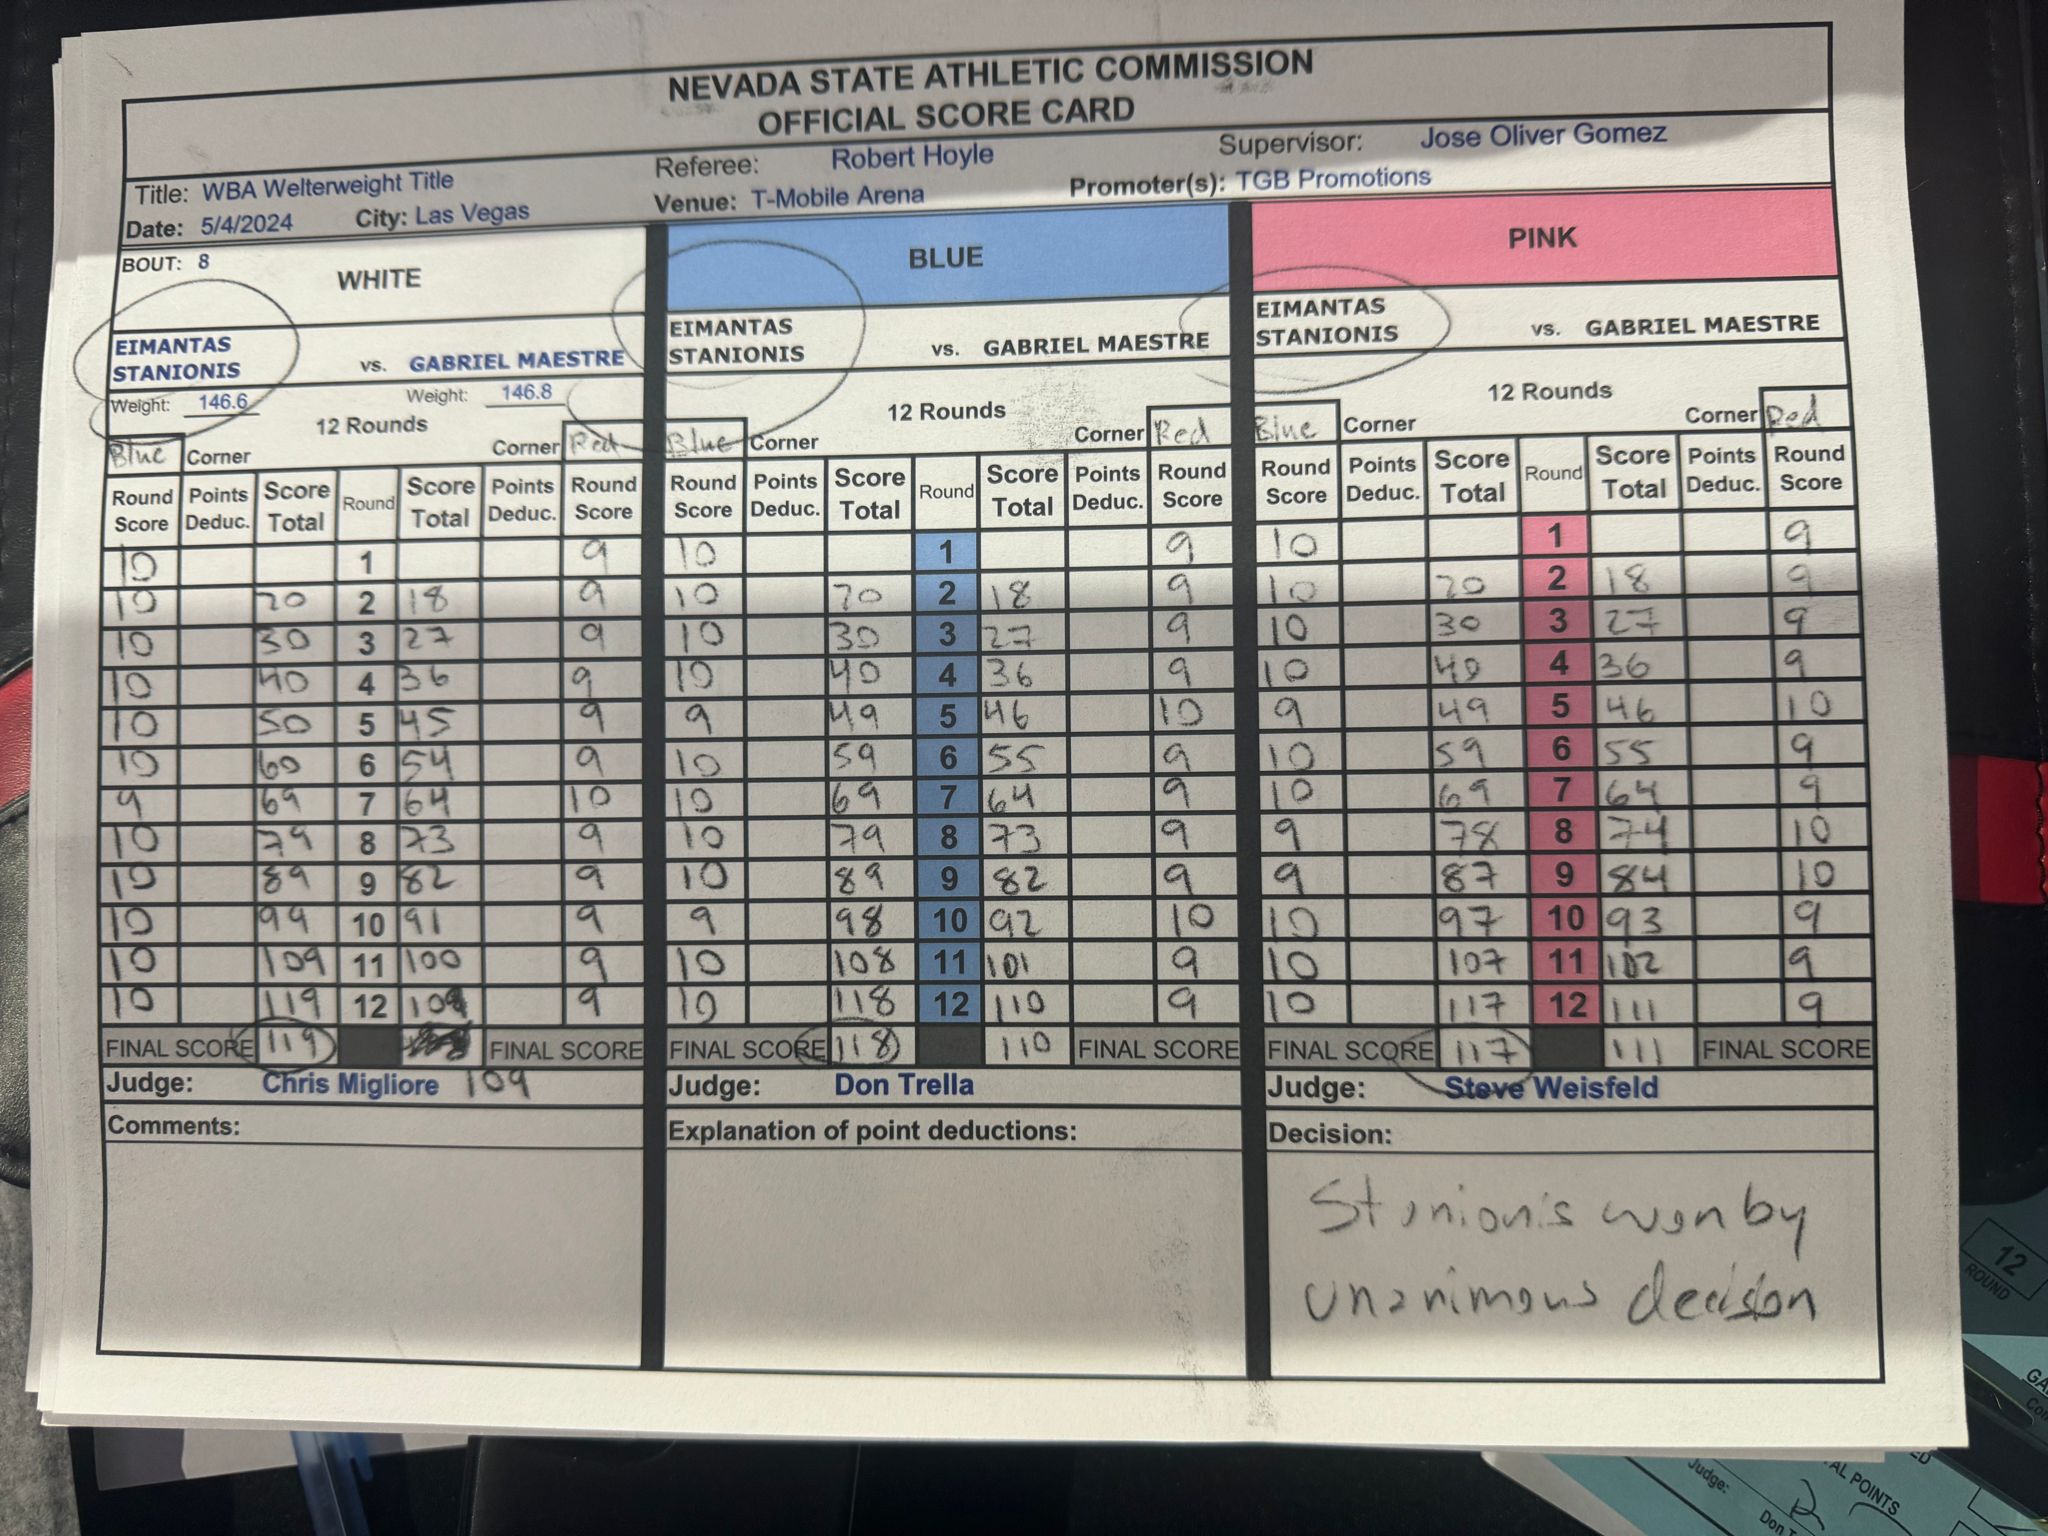 NEVADA STATE ATHLETIC COMMISSION
OFFICIAL SCORE CARD
Title: WBA Welterweight Title Referee: Robert Hoyle Supervisor: Jose Oliver Gomez
Date: 5/4/2024 City: Las Vegas Venue: T-Mobile Arena Promoter(s): TGB Promotions
BOUT: 8
WHITE
EIMANTAS
STANIONIS vs. GABRIEL MAESTRE
Weight: 146.6 Weight: 146.8
12 Rounds
Blue Corner Corner Red
Round Score Points Deduc. Score Total Round Score Total Points Deduc. Round Score
10 1 9
10 20 2 18 9
10 30 3 27 9
10 40 4 36 9
10 50 5 45 9
10 60 6 54 9
9 69 7 64 10
10 79 8 73 9
10 89 9 82 9
10 99 10 91 9
10 109 11 100 9
10 119 12 109 9
FINAL SCORE 119 FINAL SCORE
Judge: Chris Migliore 109
Comments:
BLUE
EIMANTAS
STANIONIS vs. GABRIEL MAESTRE
12 Rounds
Blue Corner Corner Red
Round Score Points Deduc. Score Total Round Score Total Points Deduc. Round Score
10 1 9
10 20 2 18 9
10 30 3 27 9
10 40 4 36 9
9 49 5 46 10
10 59 6 55 9
10 69 7 64 9
10 79 8 73 9
10 89 9 82 9
9 98 10 92 10
10 108 11 101 9
10 118 12 110 9
FINAL SCORE 118 110 FINAL SCORE
Judge: Don Trella
Explanation of point deductions:
PINK
EIMANTAS
STANIONIS vs. GABRIEL MAESTRE
12 Rounds
Blue Corner Corner Red
Round Score Points Deduc. Score Total Round Score Total Points Deduc. Round Score
10 1 9
10 20 2 18 9
10 30 3 27 9
10 40 4 36 9
9 49 5 46 10
10 59 6 55 9
10 69 7 64 9
9 78 8 74 10
9 87 9 84 10
10 97 10 93 9
10 107 11 102 9
10 117 12 111 9
FINAL SCORE 117 111 FINAL SCORE
Judge: Steve Weisfeld
Decision:
Stanionis won by
unanimous decision
12
ROUND
Judge:
Don
POINTS